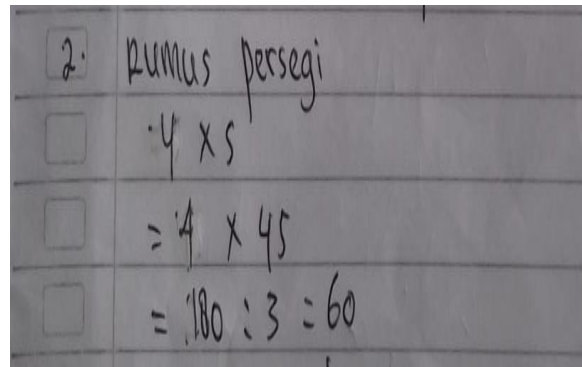 2. Rumus persegi
4 x s
= 4 x 45
= 180 : 3 = 60